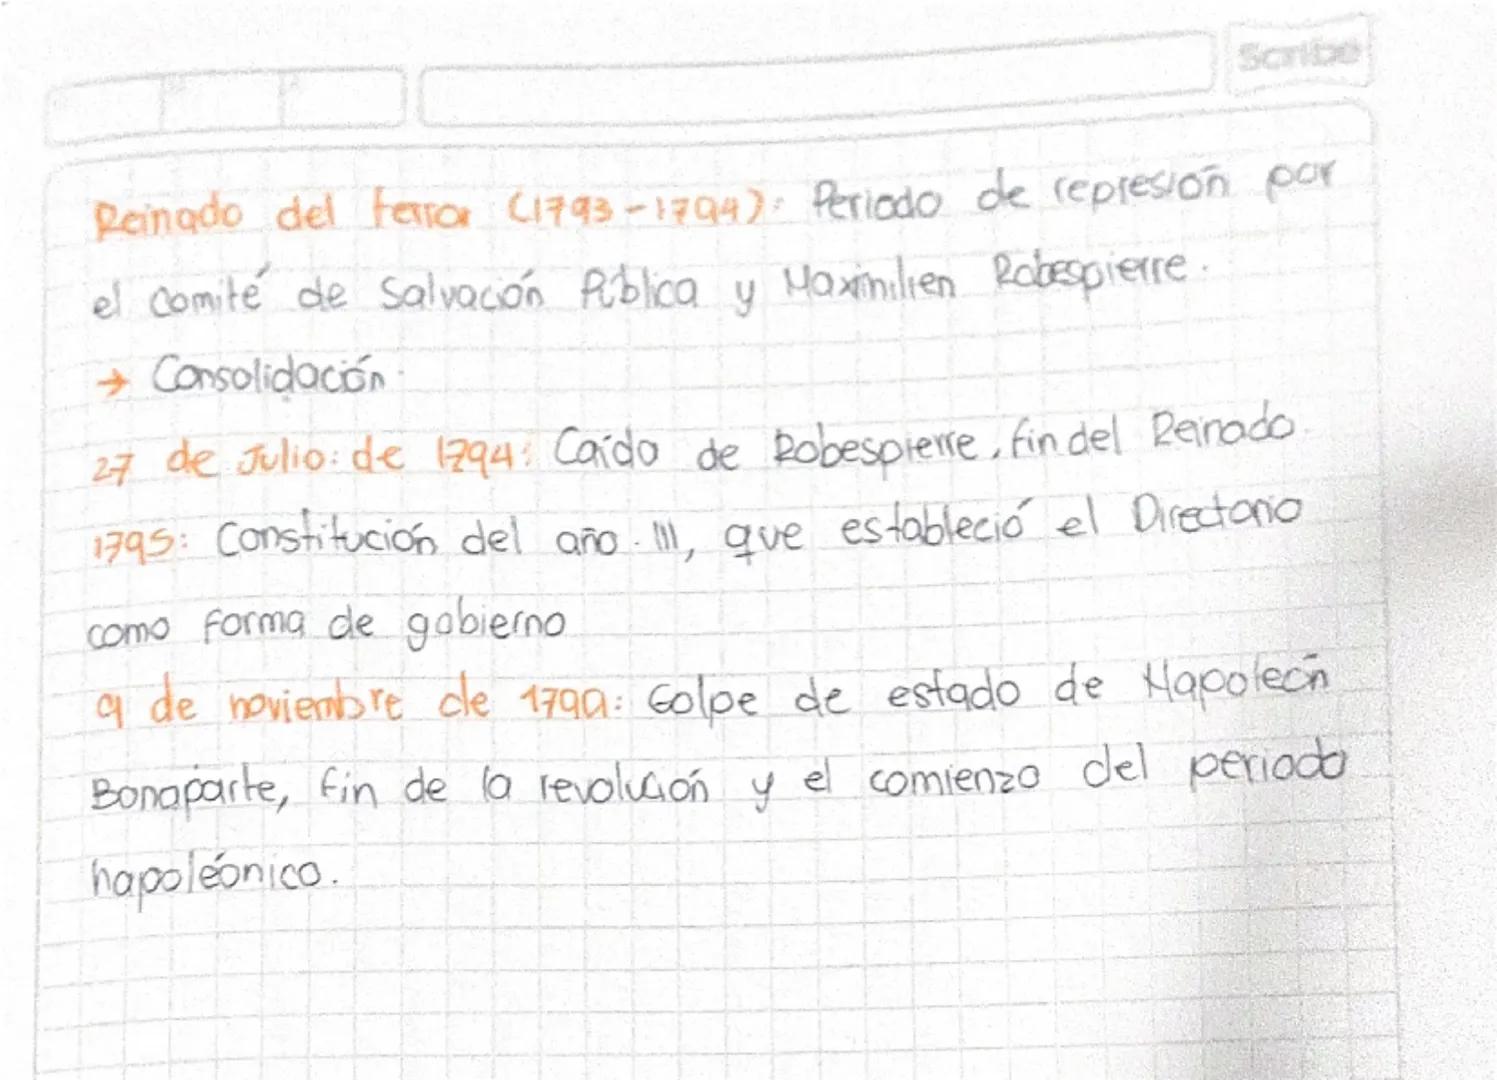 Scribe
Reinado del terror (1793-1794): Periodo de represión por
el comité de Salvación Pública y Maximilien Robespierre.
→ Consolidación.
27 de Julio: de 1794: Caída de Robespierre, fin del Reinado.
1795: Constitución del año III, que estableció el Directorio
como forma de gobierno
9 de noviembre de 1799: Golpe de estado de Napoleón
Bonaparte, fin de la revolución y el comienzo del periodo
napoleónico.